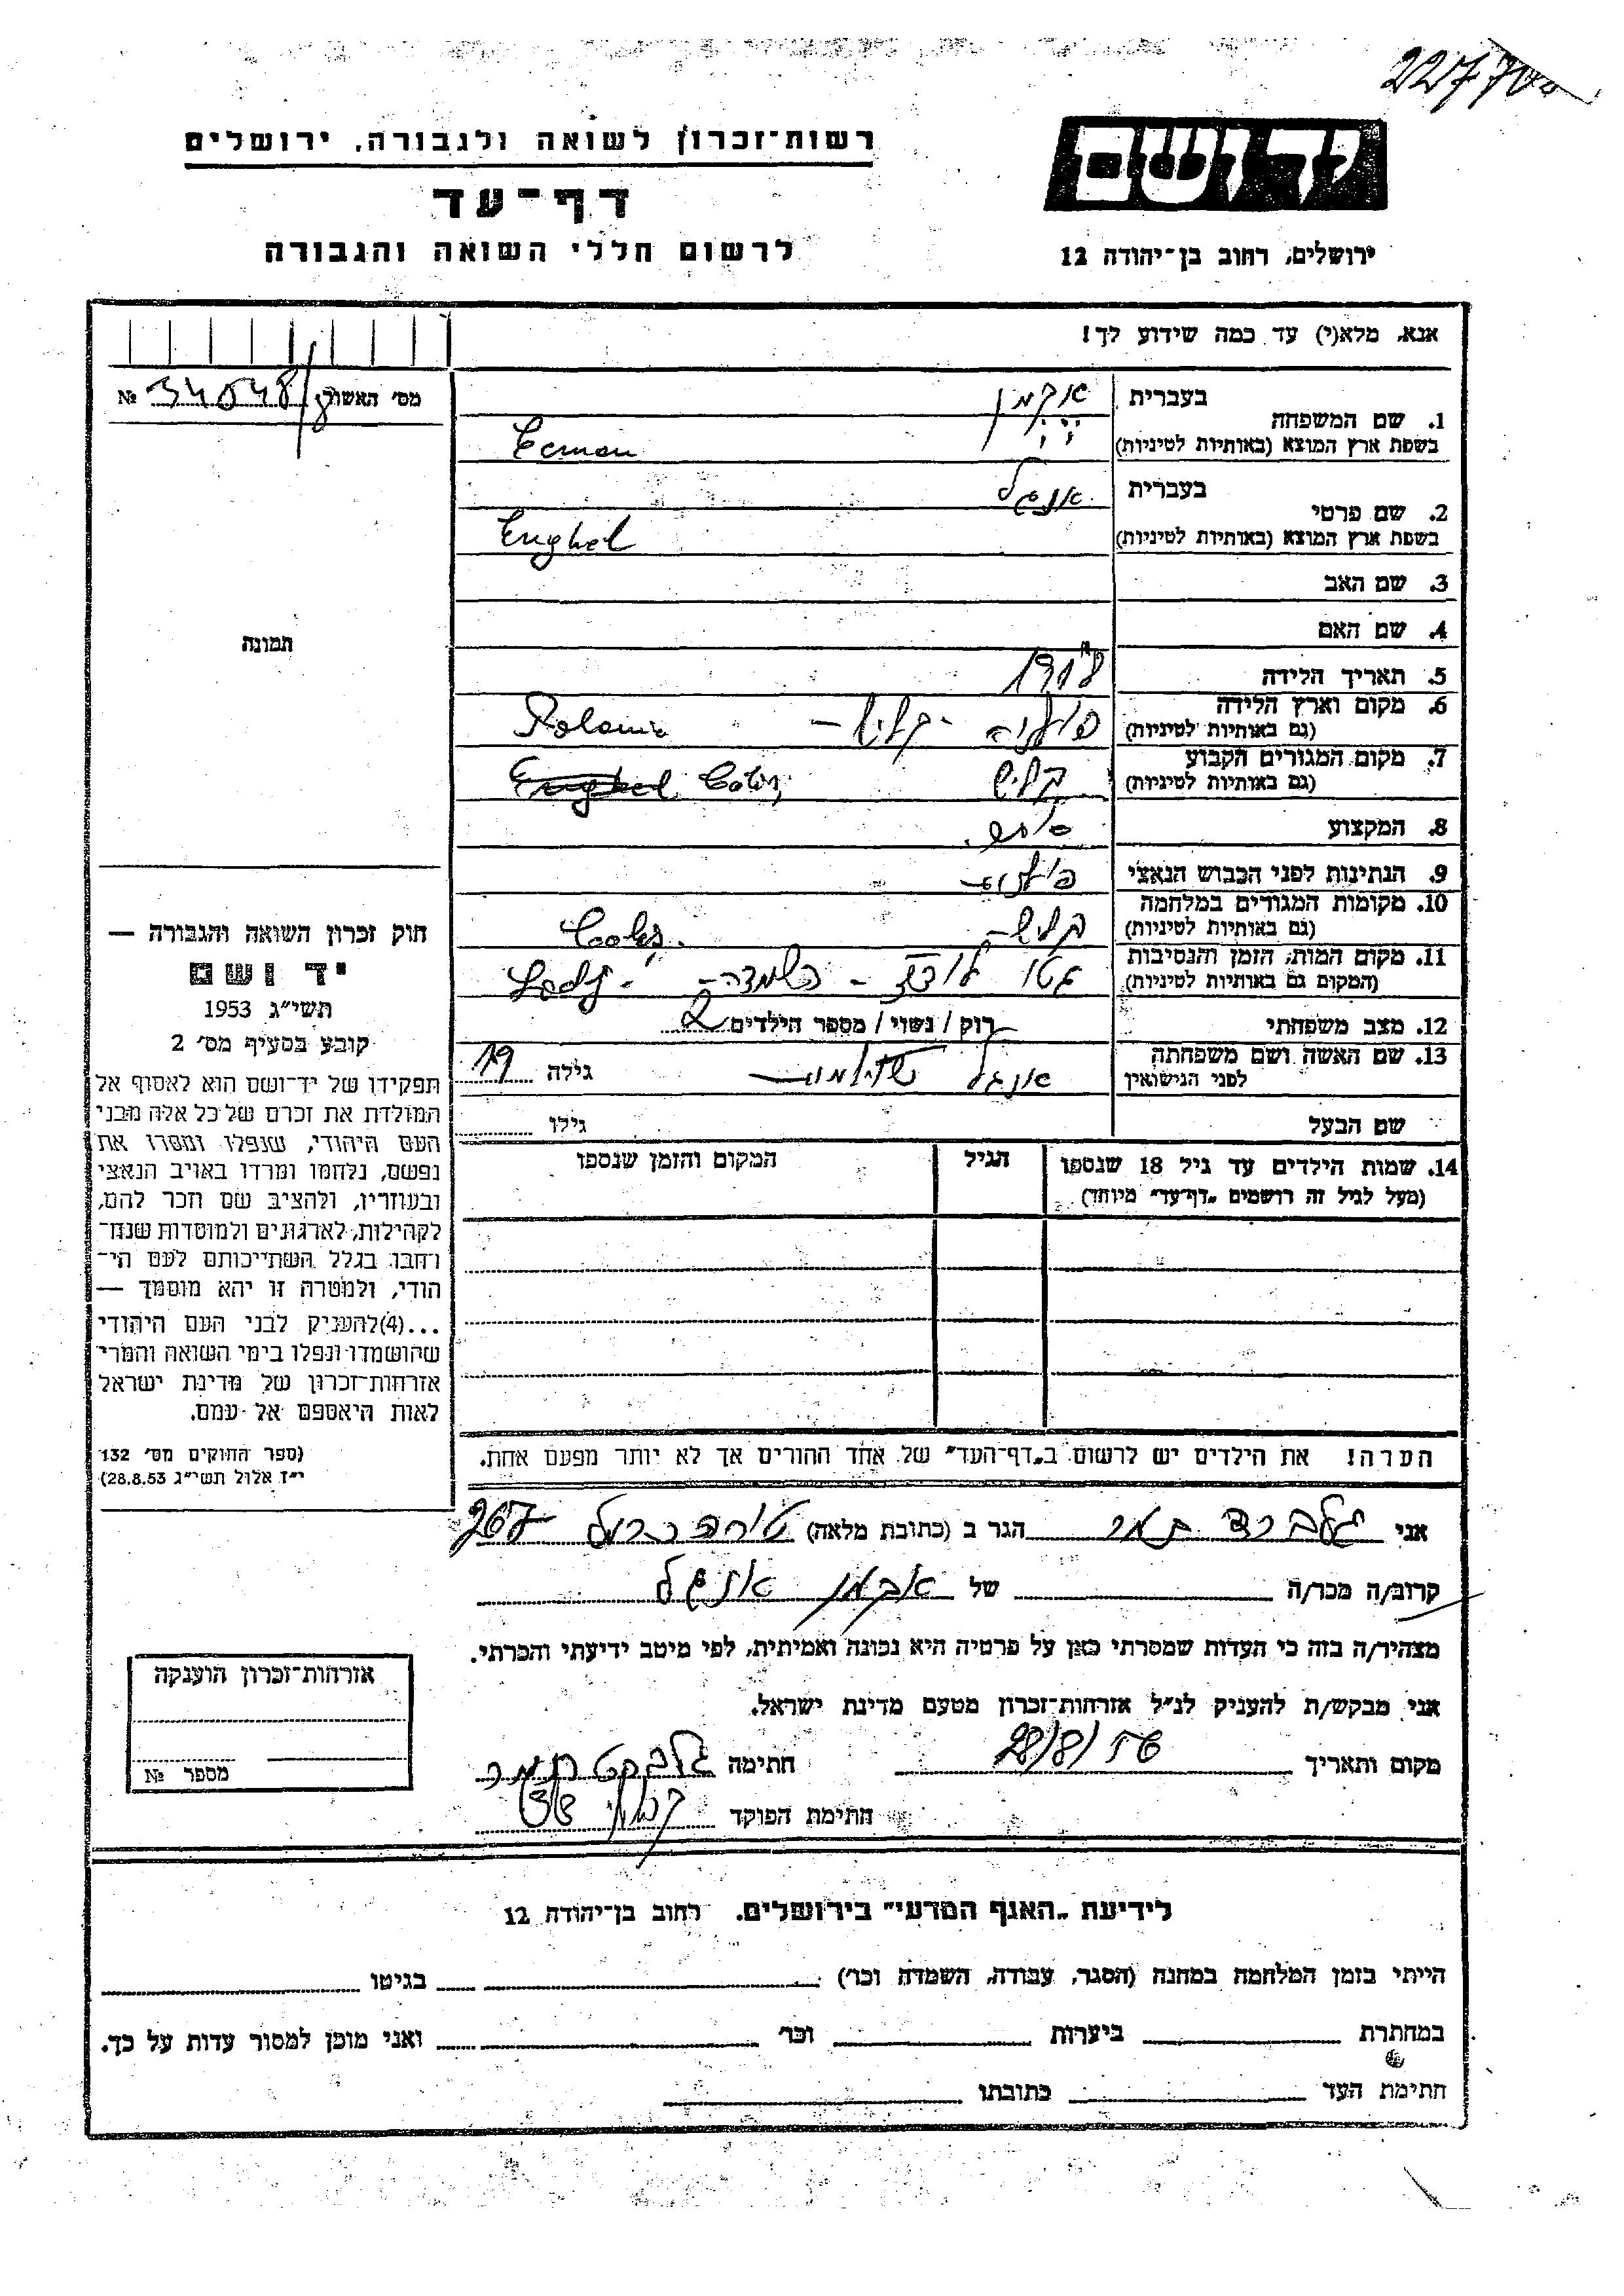 227700
רשות־זכרון לשואה ולגבורה, ירושלים
דף־עד
לרשום חללי השואה והגבורה
ידושם
ירושלים, רחוב בן־יהודה 12
אנא, מלא(י) עד כמה שידוע לך!
מס׳ האשור № 34048/8
1. שם המשפחה
בעברית אקמן
בשפת ארץ המוצא (באותיות לטיניות) Ecman
2. שם פרטי
בעברית אנגל
בשפת ארץ המוצא (באותיות לטיניות) Enghel
3. שם האב
4. שם האם
תמונה
5. תאריך הלידה 1918
6. מקום וארץ הלידה
(גם באותיות לטיניות) פולניה - קליש - Polonia
7. מקום המגורים הקבוע
(גם באותיות לטיניות) קליש Enghel
8. המקצוע
9. הנתינות לפני הכבוש הנאצי
10. מקומות המגורים במלחמה
(גם באותיות לטיניות) קליש
11. מקום המות, הזמן והנסיבות
(המקום גם באותיות לטיניות) גטו לודז - השמדה - Lodz
12. מצב משפחתי רוק / נשוי / מספר הילדים 2
13. שם האשה ושם משפחתה
לפני הנישואין אנגל גילה 19
שם הבעל גילו
14. שמות הילדים עד גיל 18 שנספו
(מעל לגיל זה רושמים „דף־עד״ מיוחד)
הגיל
המקום והזמן שנספו
חוק זכרון השואה והגבורה —
יד ושם
תשי״ג 1953
קובע בסעיף מס׳ 2
תפקידו של יד־ושם הוא לאסוף אל
המולדת את זכרם של כל אלה מבני
העם היהודי, שנפלו ומסרו את
נפשם, נלחמו ומרדו באויב הנאצי
ובעוזריו, ולהציב שם וזכר להם,
לקהילות, לארגונים ולמוסדות שנח־
רחבו בגלל השתייכותם לעם הי־
הודי, ולמטרה זו יהא מוסמך —
...(4)להעניק לבני העם היהודי
שהושמדו ונפלו בימי השואה והמרי
אזרחות־זכרון של מדינת ישראל
לאות היאספם אל עמם.
(ספר החוקים מס׳ 132
י״ז אלול תשי״ג 28.8.53)
הערה! את הילדים יש לרשום ב„דף־העד״ של אחד ההורים אך לא יותר מפעם אחת.
אני תמר הגר ב (כתובת מלאה) טירה כרמל 267
קרוב/ה מכר/ה של אקמן אנגל
מצהיר/ה בזה כי העדות שמסרתי כאן על פרטיה היא נכונה ואמיתית, לפי מיטב ידיעתי והכרתי.
אני מבקש/ת להעניק לנ״ל אזרחות־זכרון מטעם מדינת ישראל.
מקום ותאריך 28/8/56 חתימה תמר
חתימת הפוקד
אזרחות־זכרון הוענקה
מספר №
לידיעת „האגף המדעי״ בירושלים. רחוב בן־יהודה 12
הייתי בזמן המלחמה במחנה (הסגר, עבודה, השמדה וכו׳) בגיטו
במחתרת ביערות וכו׳ ואני מוכן למסור עדות על כך.
חתימת העד כתובתו